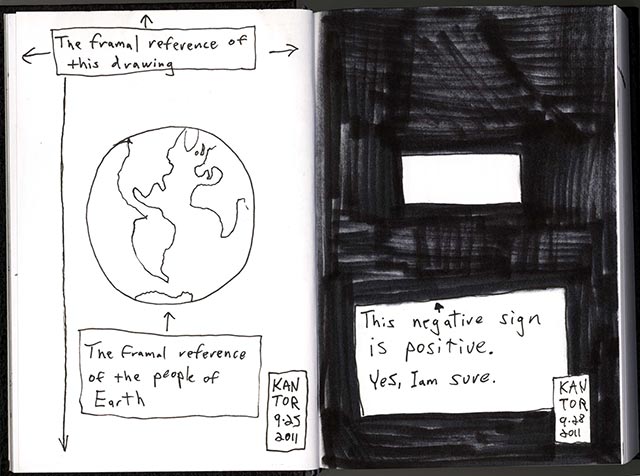 The framal reference of
this drawing
The framal reference
of the people of
Earth
KAN
TOR
9.25
2011
This negative sign
is positive.
Yes, I am sure.
KAN
TOR
9.28
2011